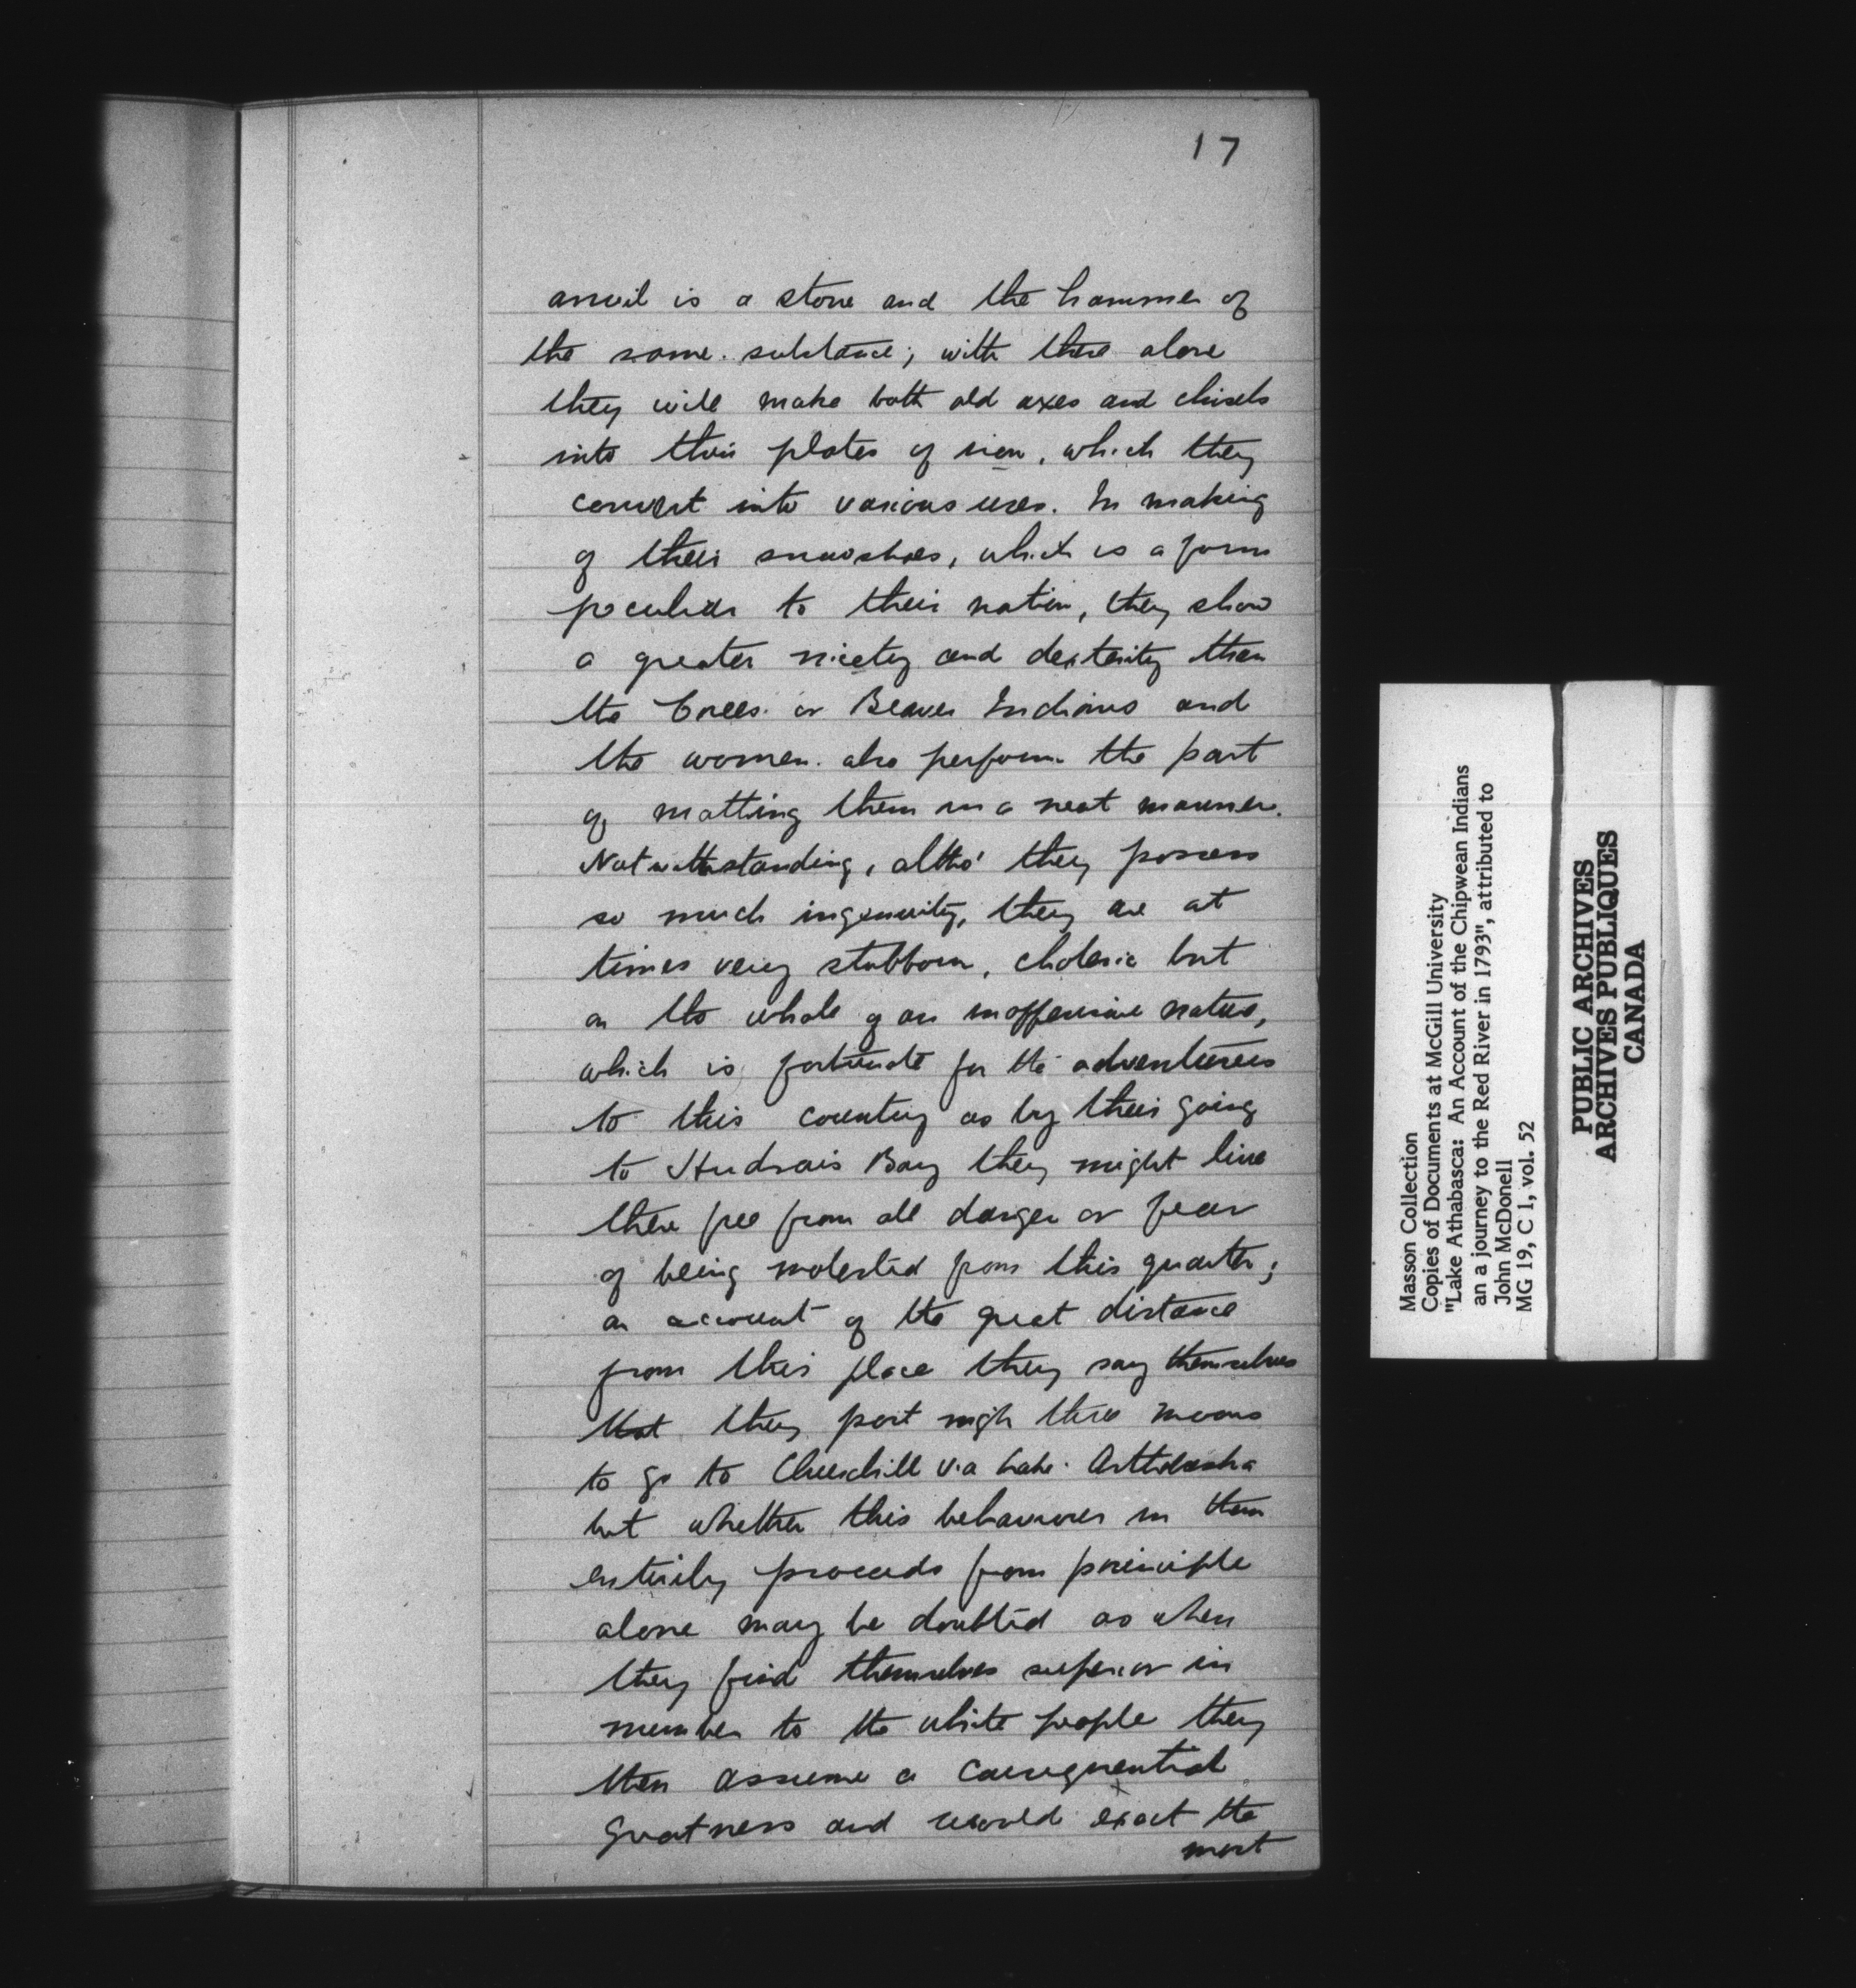 17
anvil is a stone and the hammer of
the same substance; with these alone
they will make both old axes and chisels
into thin plates of iron, which they
convert into various uses. In making
of their snowshoes, which is a form
peculiar to their nation, they show
a greater nicety and dexterity than
the Crees or Beaver Indians and
the women also perform the part
of matting them in a neat manner.
Notwithstanding, altho' they possess
so much ingenuity, they are at
times very stubborn, choleric but
on the whole of an inoffensive nature,
which is fortunate for the adventurers
to this country as by their going
to Hudson's Bay they might live
there free from all danger or fear
of being molested from this quarter;
on account of the great distance
from this place they say themselves
that they part nigh three moons
to go to Churchill via Lake
but whether this behaviour in them
entirely proceeds from principle
alone may be doubted as when
they find themselves superior in
number to the white people they
then assume a consequential
greatness and would exact the
most
Masson Collection
Copies of Documents at McGill University
"Lake Athabasca: An Account of the Chipwean Indians
an a journey to the Red River in 1793", attributed to
John McDonell
MG 19, C 1, vol. 52
PUBLIC ARCHIVES
ARCHIVES PUBLIQUES
CANADA